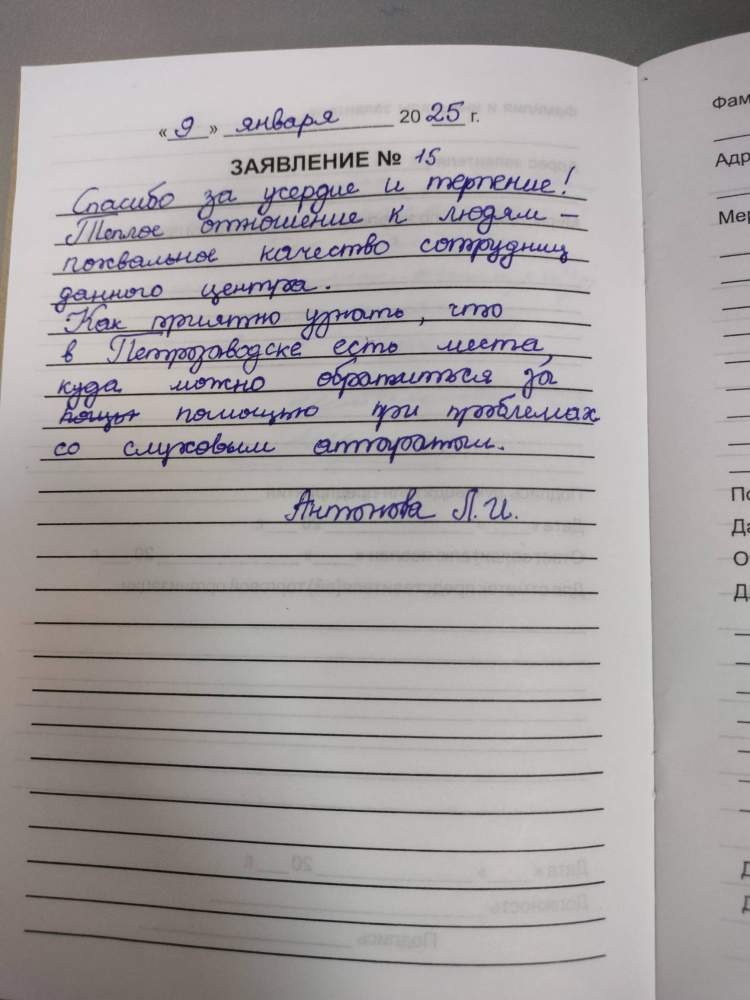 «9» января 2025 г.
ЗАЯВЛЕНИЕ № 15
Спасибо за усердие и терпение!
Теплое отношение к людям –
похвальное качество сотрудниц
данного центра.
Как приятно узнать, что
в Петрозаводске есть места,
куда можно обратиться за
помощью при проблемах
со слуховым аппаратым.
Антонова Л.И.
Фам
Адр
Мер
По
Да
О
Д
Д
Д